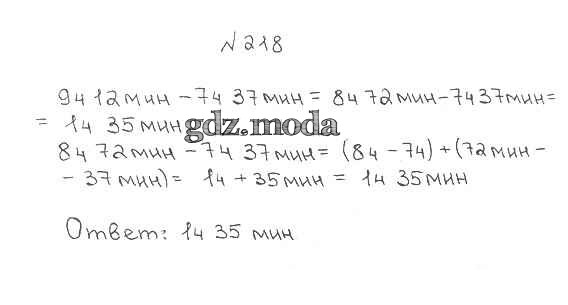 №218
9ч 12мин - 7ч 37мин = 8ч 72мин - 7ч37мин =
= 1ч 35мин
gdz.moda
8ч 72мин - 7ч 37мин = (8ч - 7ч) + (72мин -
- 37мин) = 1ч + 35мин = 1ч 35мин
Ответ: 1ч 35 мин